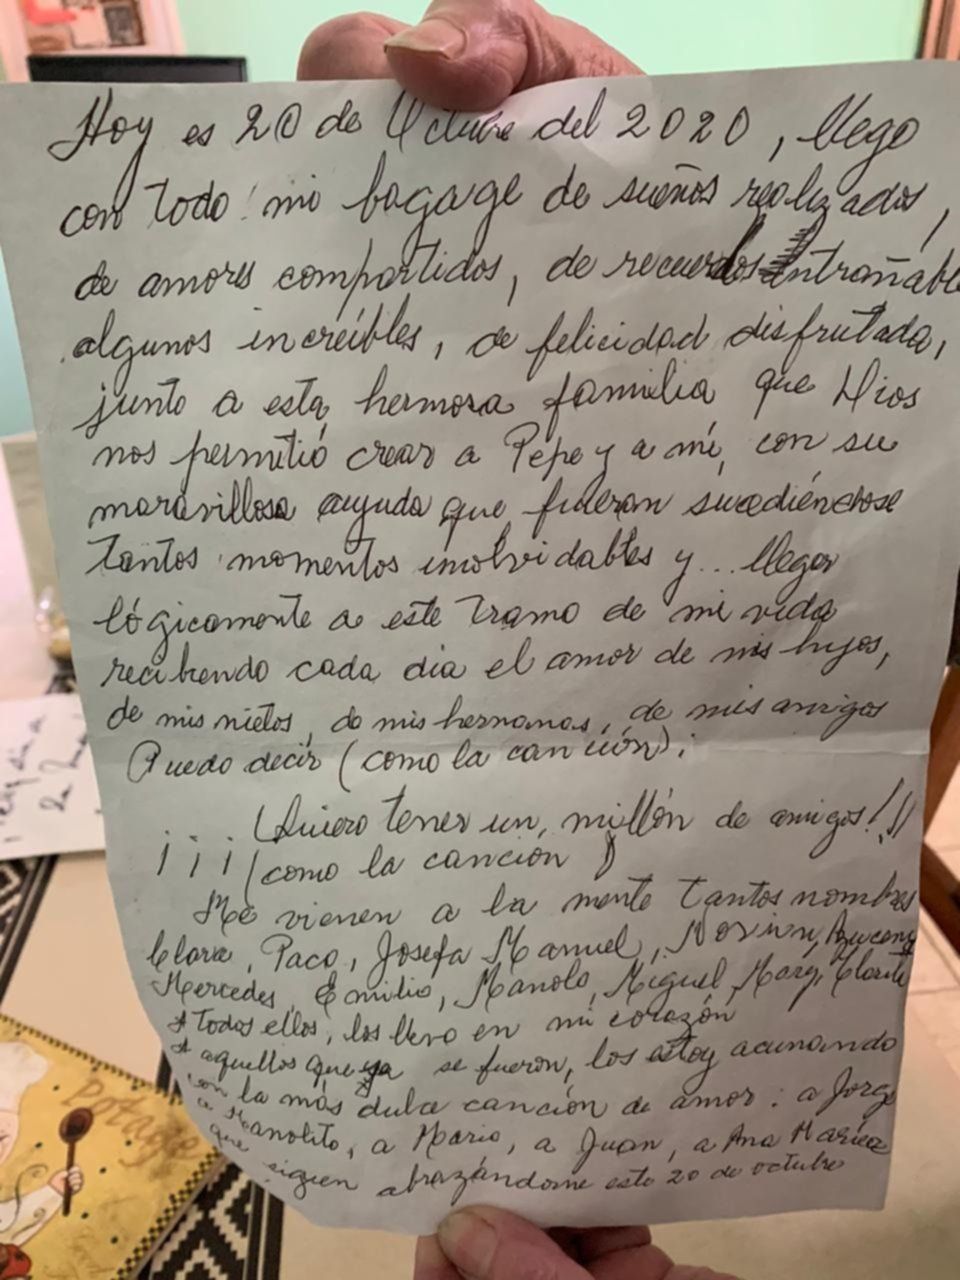 Hoy es 20 de Octubre del 2020, llego
con todo mi bagage de sueños realizados,
de amores compartidos, de recuerdos entrañabl
algunos increíbles, de felicidad disfrutada,
junto a esta hermosa familia que Dios
nos permitió crear a Pepe y a mí, con su
maravillosa ayuda que fueran sucediéndose
tantos momentos inolvidables y... llegar
lógicamente a este tramo de mi vida
recibiendo cada día el amor de mis hijos,
de mis nietos, de mis hermanas, de mis amigos
Puedo decir (como la canción):
Quiero tener un, millón de amigos!!!
¡¡¡(como la canción)
Me vienen a la mente tantos nombres
Clara, Paco, Josefa Manuel,
Mercedes, Emilio, Manolo, Miguel, Mary, Clarita
* Todos ellos, los llevo en mi corazón
* aquellos que ya se fueron, los estoy acunando
con la más dulce canción de amor: a Jorge
a Manolito, a Mario, a Juan, a Ana María
que siguen abrazándome este 20 de octubre
Potage